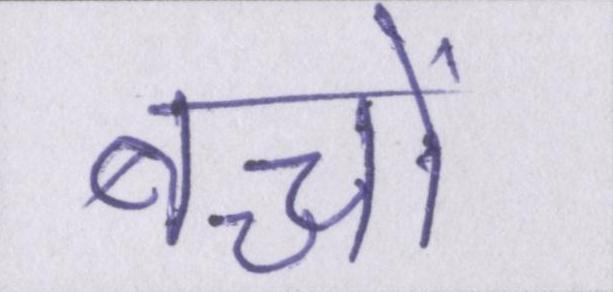 बच्चों